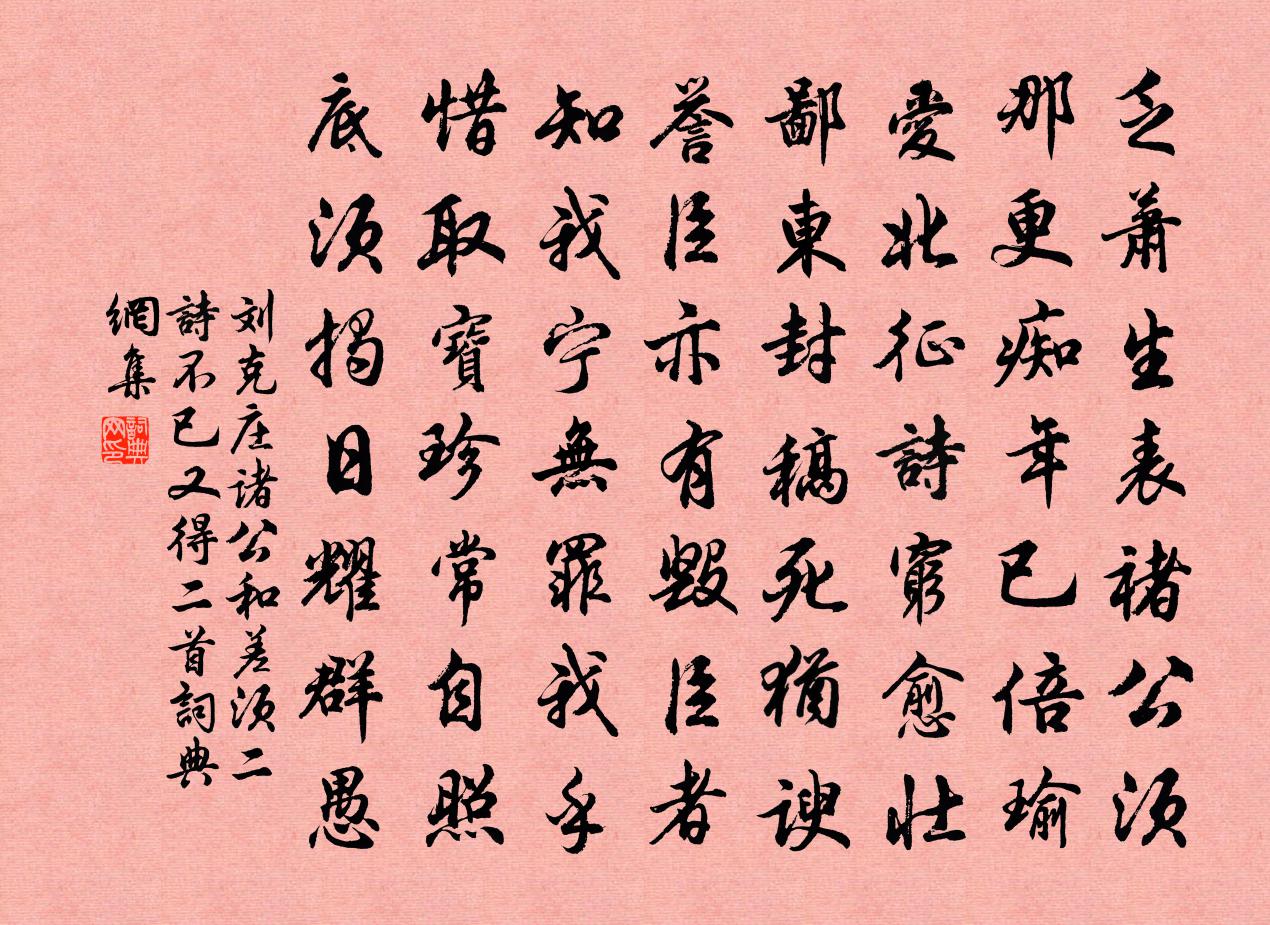 乏蕭生表褚公须
那更痴年已倍瑜
愛北征詩窮愈壮
鄙東封稿死猶諛
誉臣亦有毀臣者
知我宁無罪我乎
惜取寶珍常自照
底须揭日耀群愚
刘克庄诸公和差须二
詩不已又得二首詞典
網集
詞典
网印